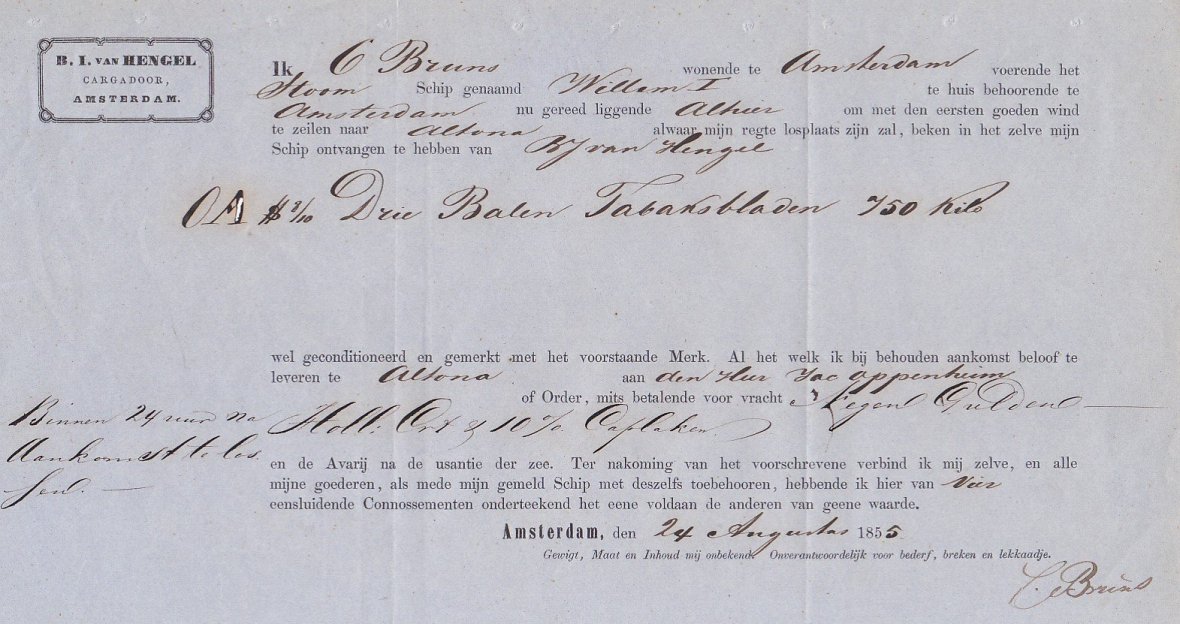 B. I. VAN HENGEL
CARGADOOR,
AMSTERDAM.
Ik C Bruns wonende te Amsterdam voerende het
Stoom Schip genaamd Willem I te huis behoorende te
Amsterdam nu gereed liggende Alhier om met den eersten goeden wind
te zeilen naar Altona alwaar mijn regte losplaats zijn zal, beken in het zelve mijn
Schip ontvangen te hebben van BJ van Hengel
OA 8/10 Drie Balen Tabaksbladen 750 Kilo
wel geconditioneerd en gemerkt met het voorstaande Merk. Al het welk ik bij behouden aankomst beloof te
leveren te Altona aan den Heer Jac Oppenheim
of Order, mits betalende voor vracht Negen Gulden
Holl: Crt & 10% Caplaken
Binnen 24 uur na
Aankomst te los
sen.
en de Avarij na de usantie der zee. Ter nakoming van het voorschrevene verbind ik mij zelve, en alle
mijne goederen, als mede mijn gemeld Schip met deszelfs toebehooren, hebbende ik hier van Vier
eensluidende Connossementen onderteekend het eene voldaan de anderen van geene waarde.
Amsterdam, den 24 Augustus 1855
Gewigt, Maat en Inhoud mij onbekend. Onverantwoordelijk voor bederf, breken en lekkaadje.
C. Bruns